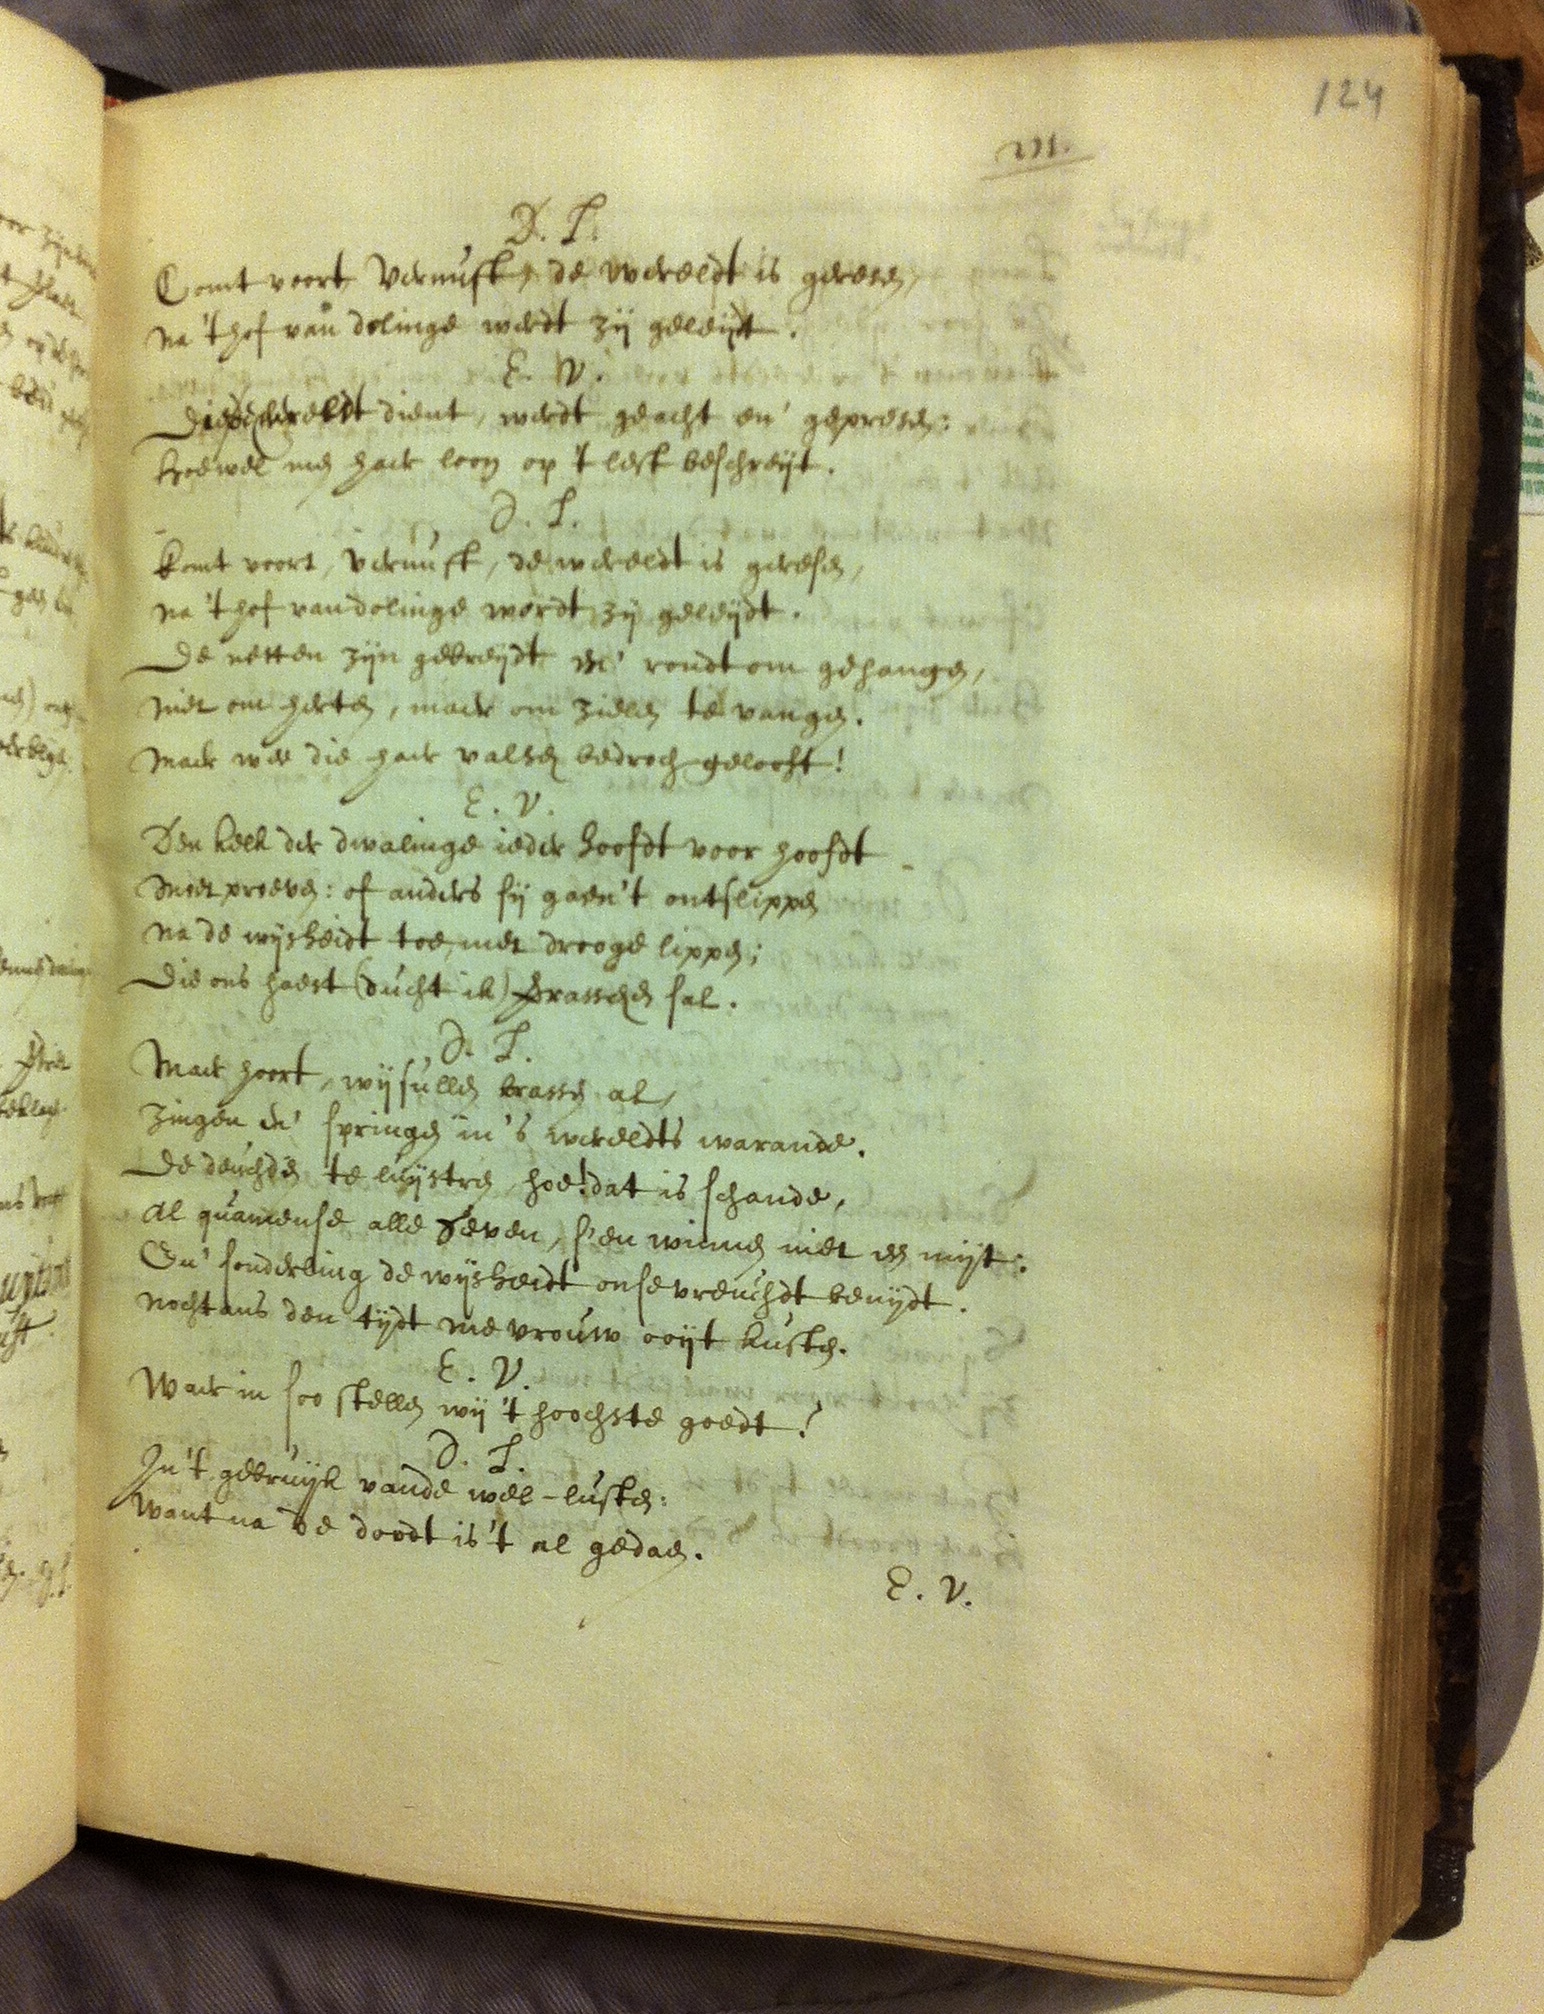 124
m.
D. L.
Comt voort Vernuft, de wereldt is geresen,
na 't hof van dolinge werdt zij geleijdt.
E. V.
Die de wereldt dient, werdt geacht en' gepresen:
hoewel men haer loon op 't lest beschreijt.
D. L.
Komt voort, Vernuft, de wereldt is geresen,
na 't hof van dolinge wordt zij geleijdt.
De netten zijn gebreijdt en' rondtom gehangen,
niet om herten, maer om zielen te vangen.
Maer wee die haer valsch bedroch gelooft!
E. V.
Den kelk der dwalinge ieder hoofdt voor hoofdt
moet proeven: of anders sij gaen 't ontslippen
na de wijsheidt toe, met drooge lippen;
Die ons haest (ducht ik) sal.
D. L.
Maer hoort, wij sullen brassen al,
zingen en' springen in 's wereldts warande.
De deuchden te luijstren, hoe! dat is schande,
Al quamense alle seven, s'en winnen niet een mijt:
En' sonderling de wijsheidt onse vreuchdt benijdt.
nochtans den tijdt mevrouw ooijt kusten.
E. V.
Waer in soo stellen wij 't hoochste goedt?
D. L.
In 't gebruijk vande wel-lusten:
want na de doodt is 't al gedaen.
E. V.